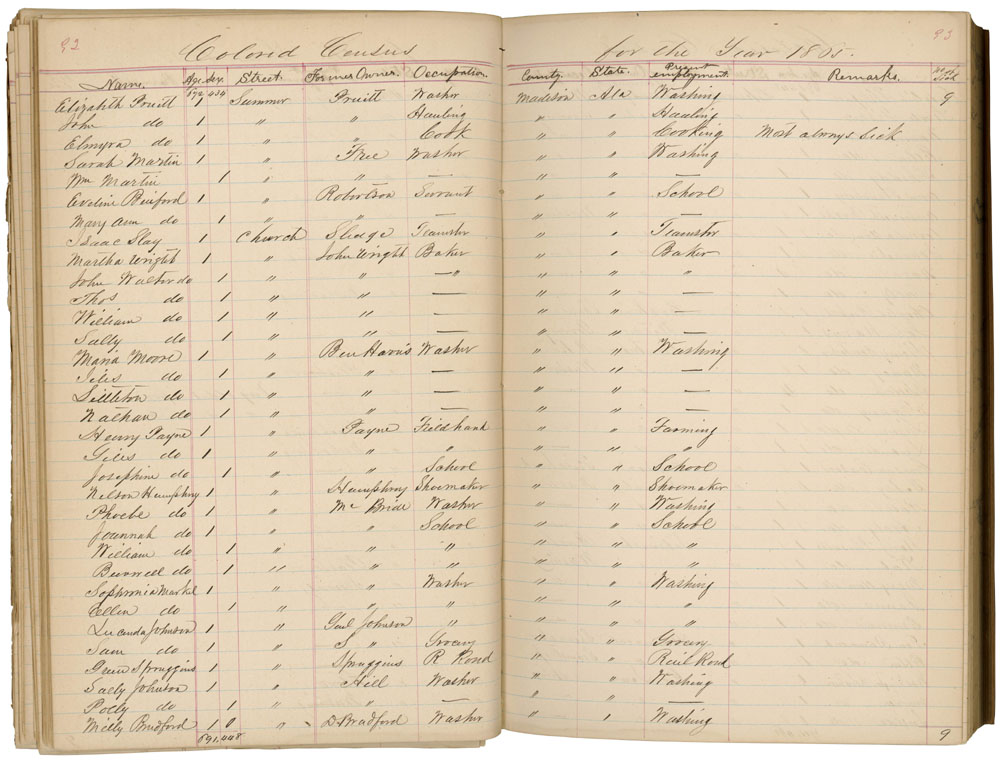 92 Colored Census for the Year 1865. 93
Name. Age Sex. Street. Former Owner. Occupation. County. State. Present employment. Remarks.
672 434
Elizabeth Pruitt 1 Summer Pruitt Washer Madison Ala Washing 9
John do 1 " " Hauling " " Hauling
Elmyra do 1 " " Cook " " Cooking Most always Sick
Sarah Martin 1 " Free Washer " " Washing
Wm Martin 1 " " — " " —
Eveline Binford 1 " Robertson Servant " " School
Mary Ann do 1 " " — " " —
Isaac Slay 1 Church Sledge Teamster " " Teamster
Martha Wright 1 " John Wright Baker " " Baker
John Walter do 1 " " — " " " "
Thos do 1 " " — " " —
William do 1 " " — " " —
Sally do 1 " " — " " —
Maria Moore 1 " Ben Harris Washer " " Washing
Giles do 1 " " — " " —
Littleton do 1 " " — " " —
Nathan do 1 " " — " " —
Henry Payne 1 " Payne Fieldhand " " Farming
Giles do 1 " " " " " "
Josephine do 1 " " School " " School
Nelson Humphry 1 " Humphry Shoemaker " " Shoemaker
Phoebe do 1 " Mc Bride Washer " " Washing
Joannah do 1 " " School " " School
William do 1 " " " " " "
Burwell do 1 " " " " " "
Sophronia Markel 1 " " Washer " " Washing
Ellen do 1 " " " " " "
Lucinda Johnson 1 " Gail Johnson " " " "
Sam do 1 " S " Grocery " " Grocery
Green Spraggins 1 " Spraggins R Road " " Rail Road
Sally Johnson 1 " Hill Washer " " Washing
Polly do 1 " " — " " —
Milly Bradford 1 0 " D Bradford Washer " " Washing
691 448 9